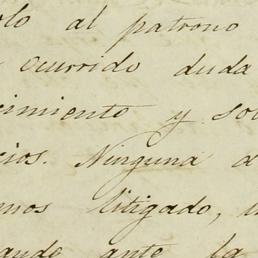 olo al patrono
ocurrido duda
cimiento y so
cios. Ninguna d
mos litigado, u
ando ante la